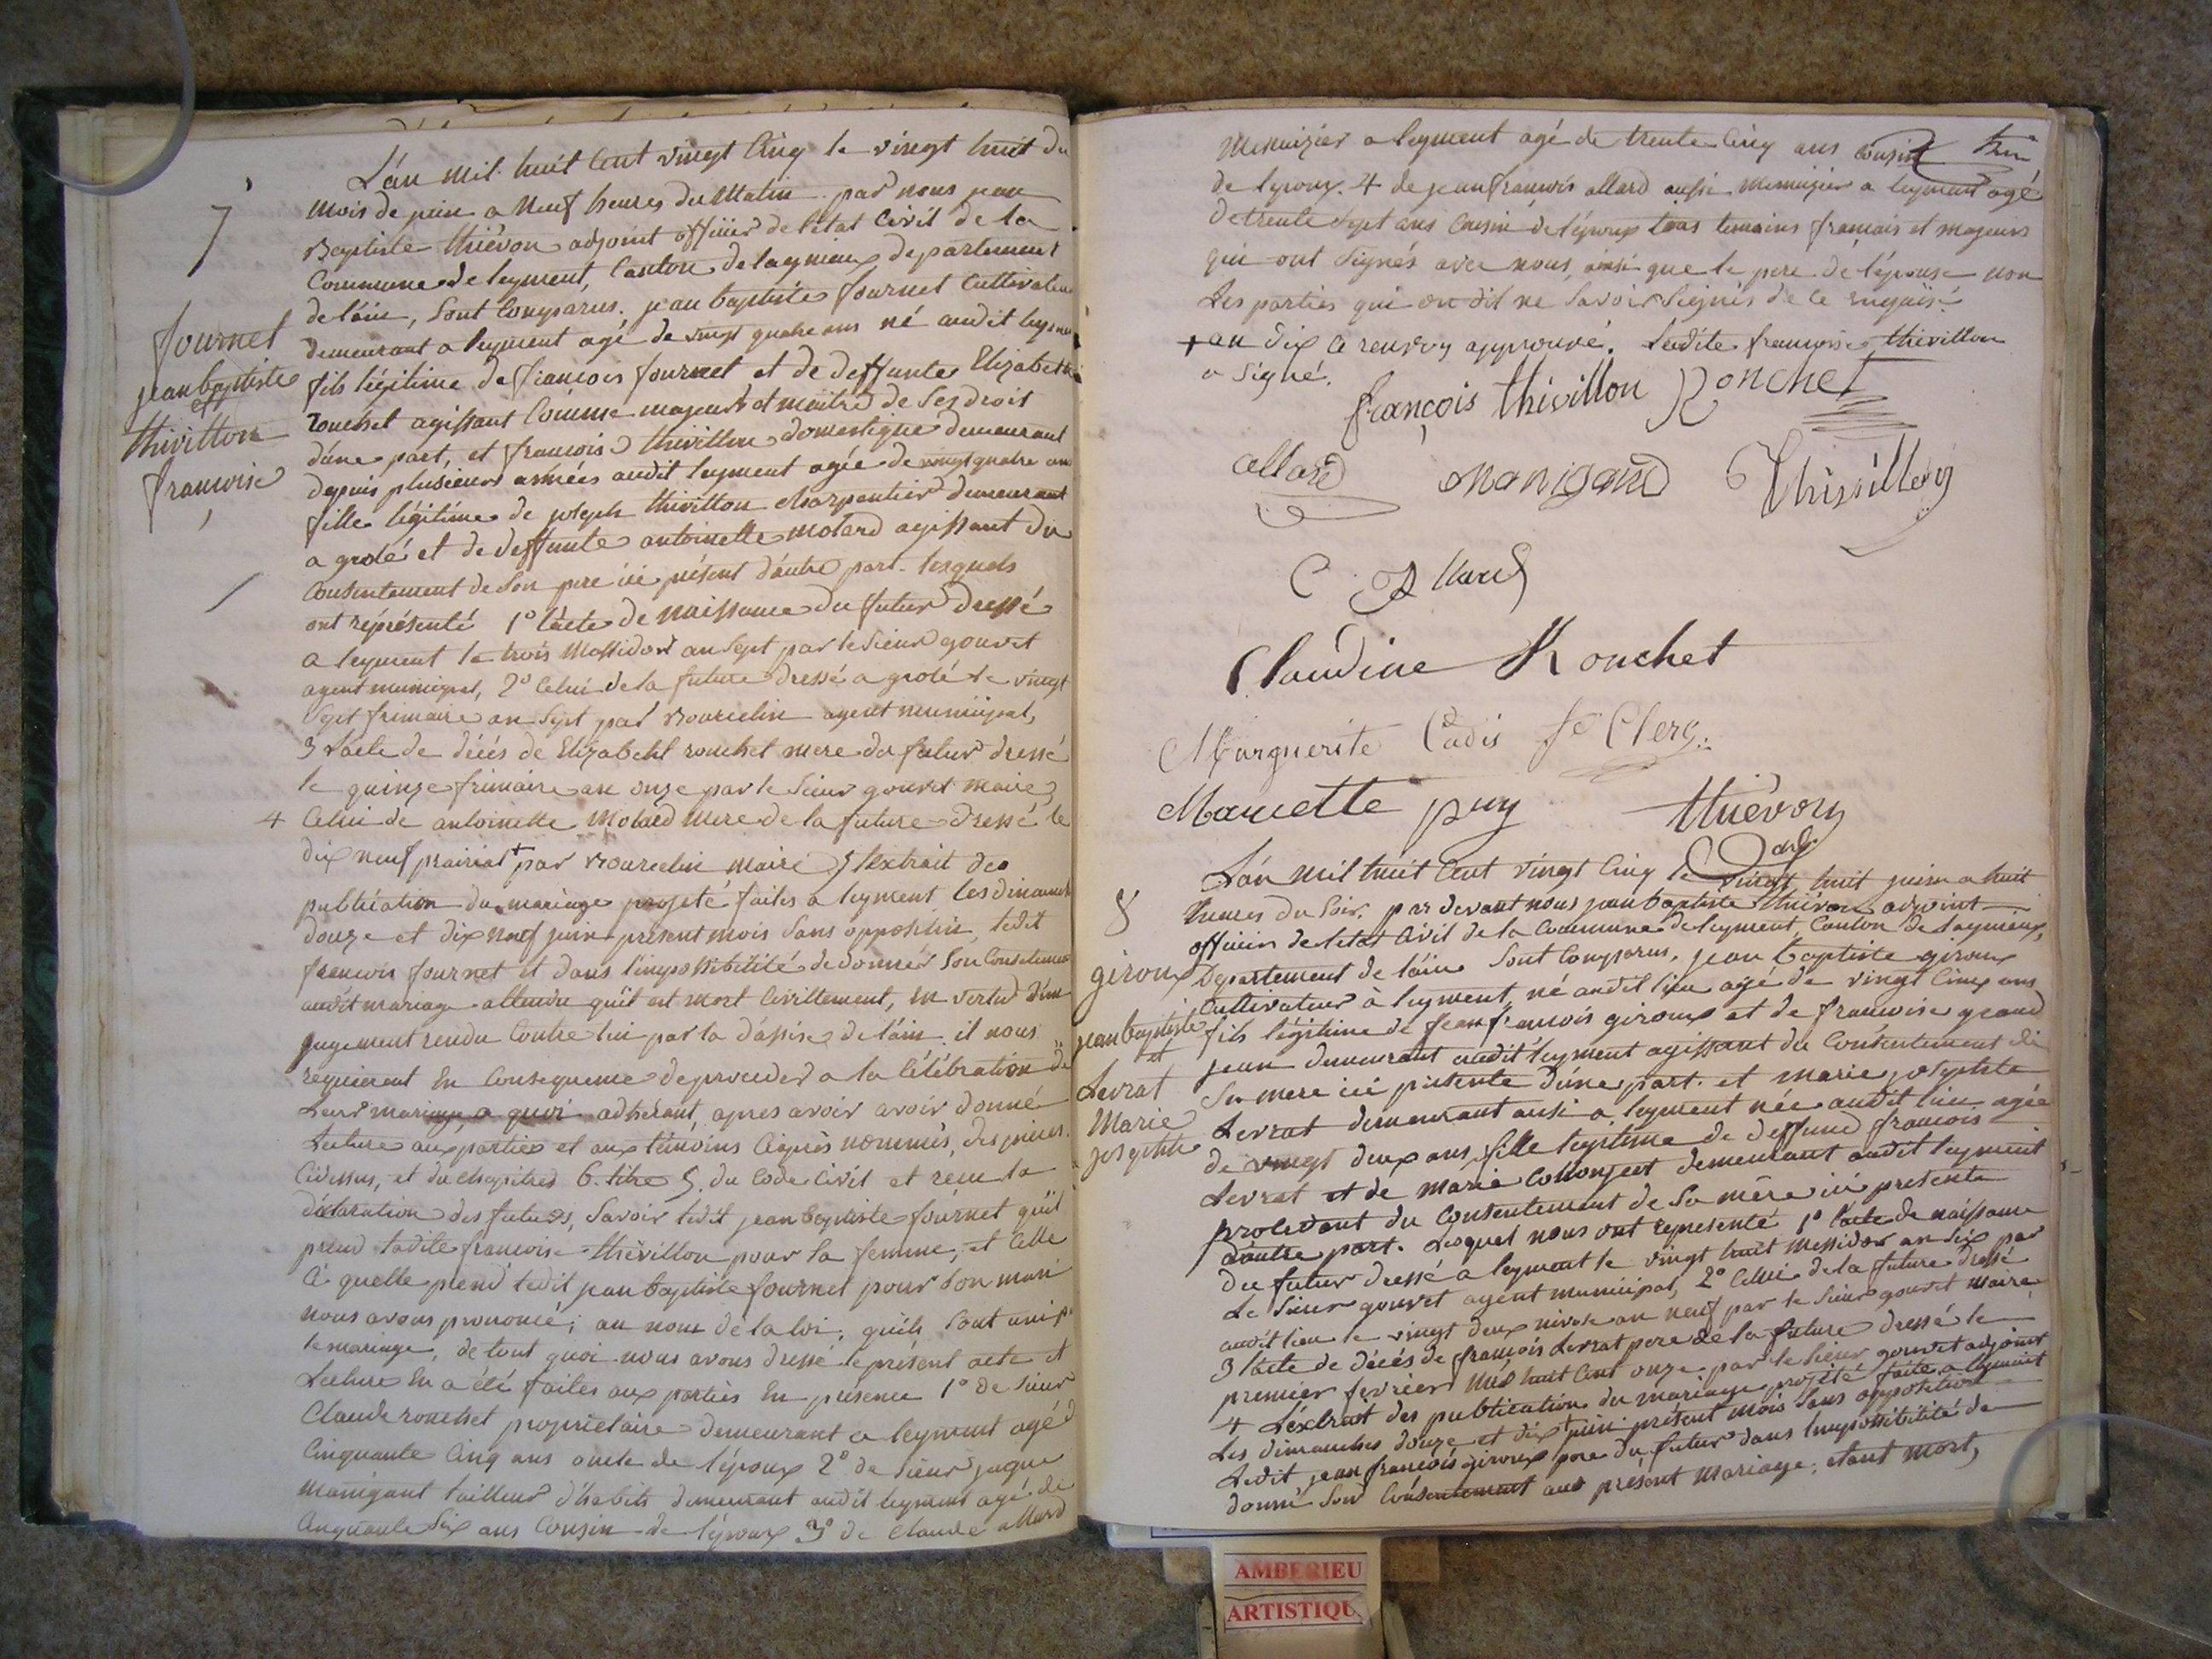 7
fournet
jean baptiste
et
thivillon
francoise
L'an mil huit Cent vingt Cinq le vingt huit du
mois de juin a Neuf heures du Matin par nous jean
Baptiste thiévon adjoint officier de l'état Civil de la
Commune de leyment, Canton de lagnieux departement
de l'ain, sont Comparus. jean baptiste fournet Cultivateur
demeurant a leyment agé de vingt quatre ans né audit leyment
fils légitime de francois fournet et de deffunte Elizabeth
rouchet agissant Comme majeur et maitre de ses droit
d'une part, et francoise thivillon domestique demeurant
depuis plusieurs années audit leyment agée de vingt quatre ans
fille légitime de joseph thivillon charpentier demeurant
a grolé et de deffunte antoinette molard agissant du
Consentement de son pere ici présent d'autre part. lesquels
ont réprésenté 1° l'acte de naissance du futur dressé
a leyment le trois Messidor an sept par le sieur gouvet
agent municipal, 2° Celui de la future dressé a grolé le vingt
sept frimaire an sept par Bourcelin agent municipal,
3 l'acte de décés de Elizabeht rouchet mere du futur dressé
le quinze frimaire an onze par le sieur gouvet maire,
4 Celui de antoinette Molard mere de la future dressé le
dix neuf prairial + par Bourcelin maire 5 l'extrait des
publication du mariage projeté faites a leyment les dimanches
douze et dix neuf juin présent mois sans opposition, ledit
francois fournet et dans l'impossibilité de donner son Consentement
audit mariage attendu qu'il est mort Civillement, en vertu d'un
jugement rendu Contre lui par la d'assise de l'ain il nous
requierent En Consequence de proceder a la Célébration de
Leur mariage, a quoi adhérant, apres avoir avoir donné
Lecture aux parties et aux témoins Ciaprès nommés, des pieces
Cidessus, et du chapitres 6. titre 5. du Code Civil et recu la
déclaration des futurs, savoir ledit jean baptiste fournet qu'il
prend ladite francoise thévillon pour sa femme, et Celle
Ci quelle prend ledit jean baptiste fournet pour son mari
nous avons prononcé; au nom de la loi; quils sont unis p
le mariage, de tout quoi nous avons dressé le présent acte et
Lecture En a été faites aux parties En présence 1° de sieur
Claude rouchet propriétaire demeurant a leyment agé d
Cinquante Cinq ans oncle de l'époux 2° de sieur jaque
manigant tailleur d'habits demeurant audit leyment agé de
Cinquante six ans Cousin de l'époux 3° de Claude allard
Menuizier a leyment agé de trente Cinq ans cousin
de lepoux. 4 de jean francois allard aussi menuizier a leyment agé
de trente sept ans Cousin de l'époux tous temoins francais et majeurs
qui ont signés avec nous, ainsi que le pere de l'épouse non
Les parties qui on dit ne savoir signés de ce requise.
+ an dix Ce renvoy approuvé. Ladite francoise thivillon
a signé.
françois thivillon Ronchet
allard manigand Thivillon
C Allard
Claudine Rouchet
Marguerite Cadis fe Clerg
Mariette puy thiévon
adj.
8
giroux
jean baptiste
et
Levrat
Marie
josephte
L'an mil huit Cent vingt Cinq le vingt huit juin a huit
heures du soir. par devant nous jean baptiste thiévon adjoint
officier de l'état Civil de la Commune de leyment, Canton de lagnieux,
Département de l'ain sont Comparus, jean baptiste giroux
Cultivateur à leyment, né audit lieu agé de vingt Cinq ans
fils légitime de jean francois giroux et de francoise grand
jean demeurant audit leyment agissant du Consentement de
sa mere ici présente d'une part. et marie josephte
Levrat demeurant aussi a leyment née audit lieu agée
de vingt deux ans, fille legitime de deffund francois
Levrat et de marie Collonjeat demeurant audit leyment
procedant du Consentement de sa mère ici presente
d'autre part. Lesquel nous ont représenté 1° l'acte de naissance
du futur dressé a leyment le vingt huit messidor an six par
Le sieur gouvet agent municipal, 2° Celui de la future dressé
audit lieu le vingt deux nivose an neuf par le sieur gouvet maire
3 l'acte de décés de francois Levrat pere de la future dressé le
premier fevrier mil huit Cent onze par le sieur gouvet adjoint
4 L'extrait des publication du mariage projeté faite a leyment
Les dimanches douze et dix + juin présent mois sans opposition
Ledit jean francois giroux pere du futur dans l'impossibilité de
donné son Consentement au présent mariage, etant mort,
AMBERIEU
ARTISTIQU